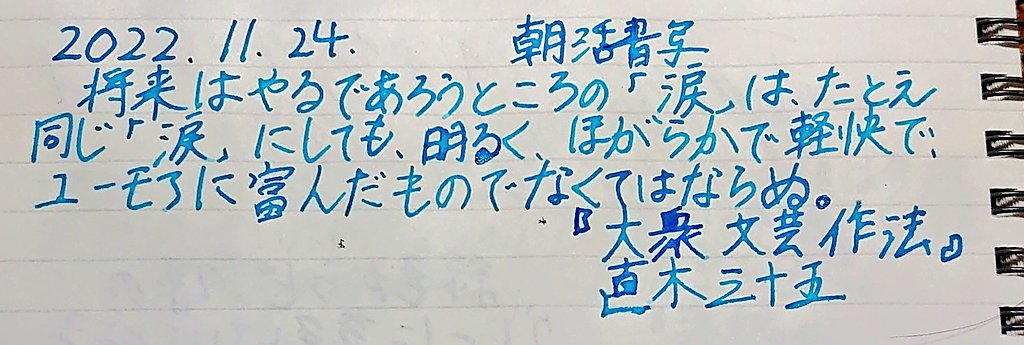 2022.11.24. 朝活書写
将来はやるであろうところの「涙」は、たとえ
同じ「涙」にしても、明るく、ほがらかで軽快で、
ユーモアに富んだものでなくてはならぬ。
『大衆文芸作法』
直木三十五